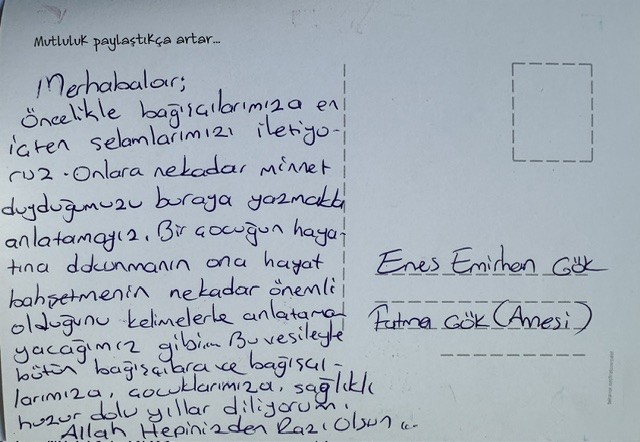 Mutluluk paylaştıkça artar...
Merhabalar;
Öncelikle bağışçılarımıza en
içten selamlarımızı iletiyo-
ruz. Onlara nekadar minnet
duyduğumuzu buraya yazmakla
anlatamayız. Bir çocuğun haya-
tına dokunmanın ona hayat
bahşetmenin nekadar önemli
olduğunu kelimelerle anlatama
yacağımız gibi... Bu vesileyle
bütün bağışçılara ve bağışçıl-
larımıza, çocuklarımıza, sağlıklı
huzur dolu yıllar diliyorum.
Allah Hepinizden Razı Olsun ...
Enes Emirhan Gök
Fatma Gök (Annesi)